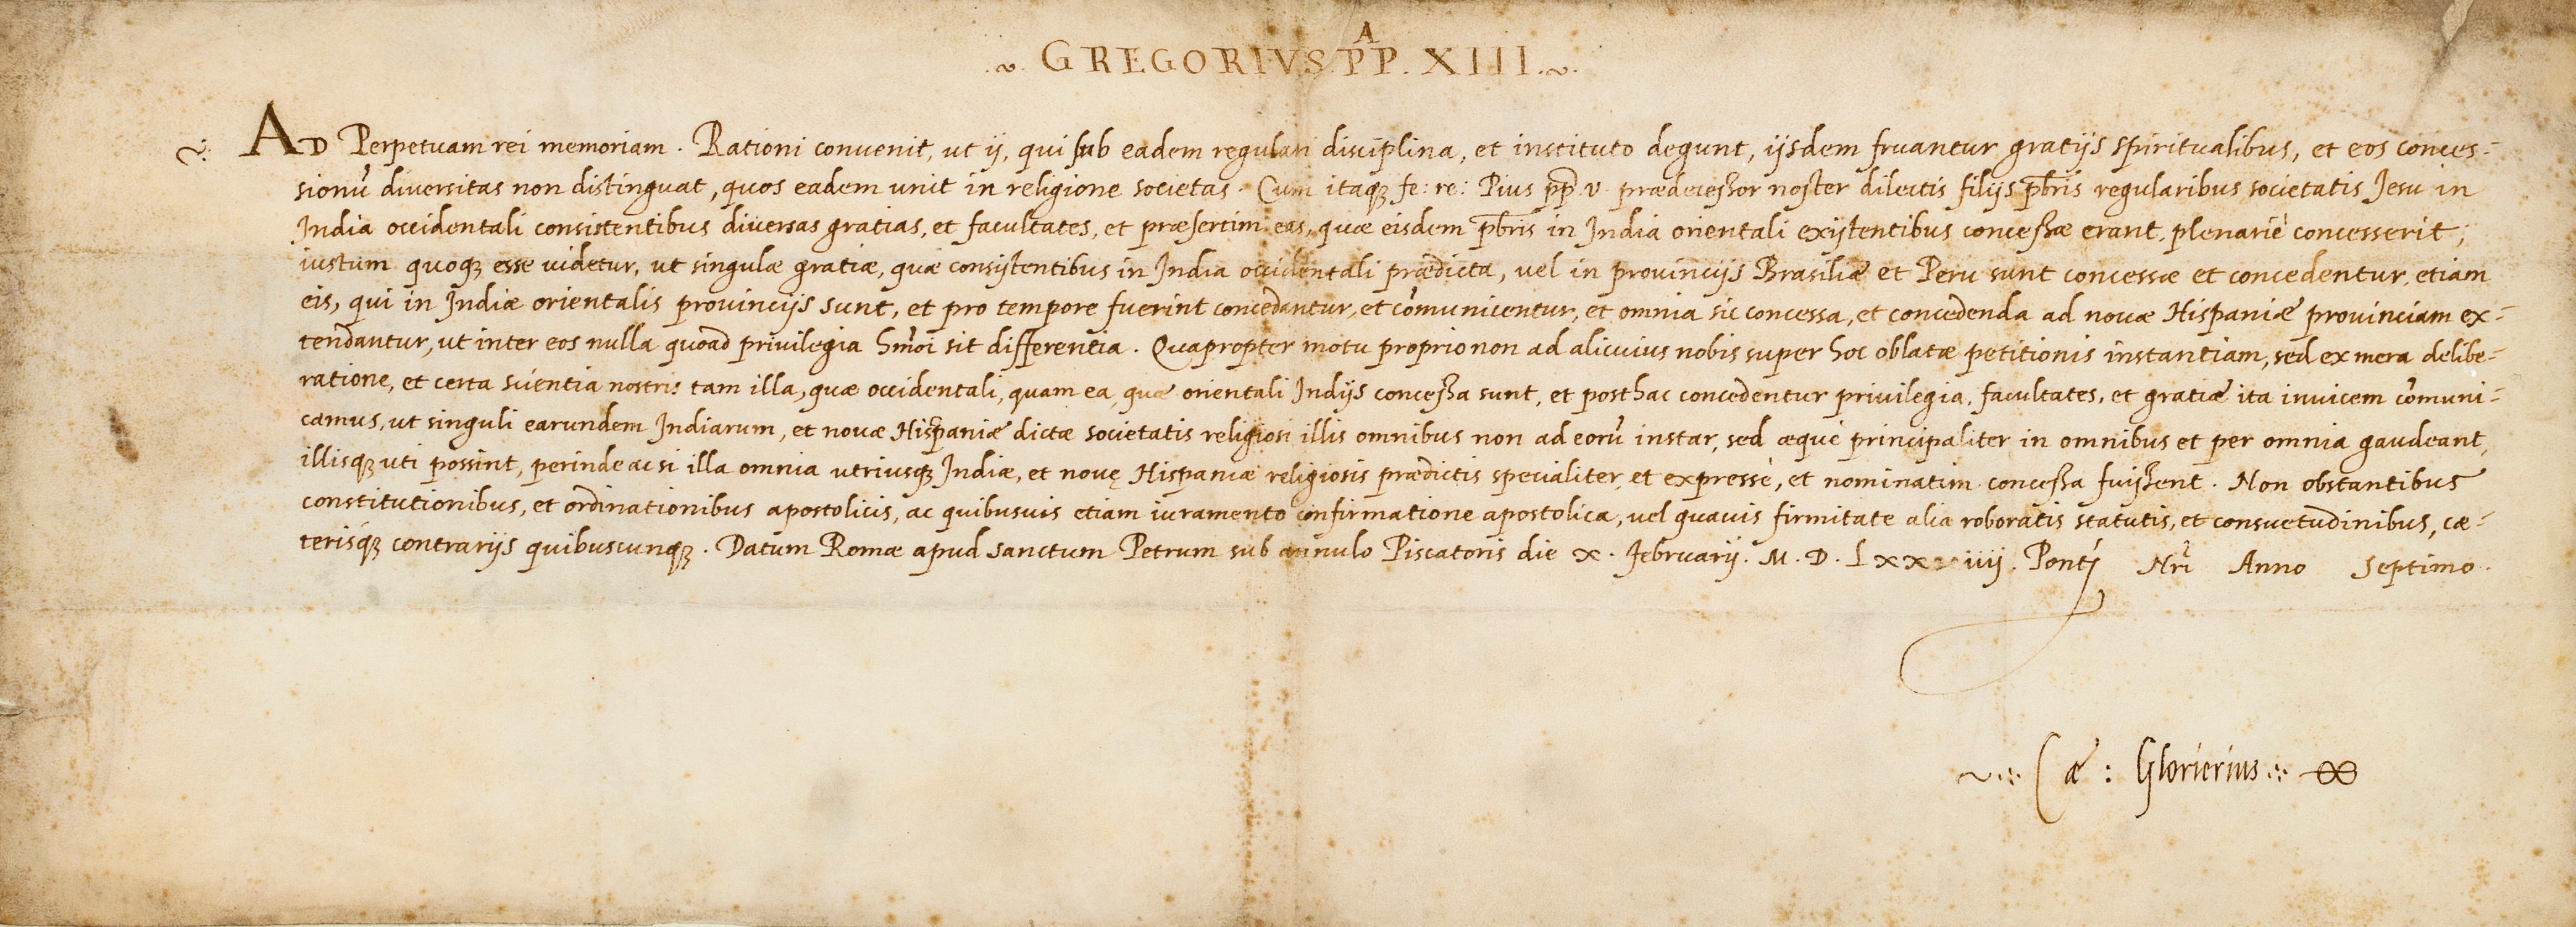 A
GREGORIVS PP. XIII.
AD Perpetuam rei memoriam. Rationi convenit, ut ij, qui sub eadem regulari disciplina, et instituto degunt, ijsdem fruantur gratijs spiritualibus, et eos conces=
sionũ diversitas non distinguat, quos eadem unit in religione societas. Cum itaqꝫ fe: re: Pius pp v. prædecessor noster dilectis filijs pb̃ris regularibus societatis Jesu in
India occidentali consistentibus diversas gratias, et facultates, et præsertim eas, quæ eisdem pb̃ris in India orientali existentibus concessæ erant, plenariè concesserit;
iustum quoqꝫ esse uidetur, ut singulæ gratiæ, quæ consistentibus in India occidentali prædicta, uel in provincijs Brasiliæ et Peru sunt concessæ et concedentur, etiam
eis, qui in Indiæ orientalis provincijs sunt, et pro tempore fuerint concedantur, et cõmunicentur, et omnia sic concessa, et concedenda ad novæ Hispaniæ provinciam ex=
tendantur, ut inter eos nulla quoad privilegia hm̃oi sit differentia. Quapropter motu proprio non ad alicuius nobis super hoc oblatæ petitionis instantiam, sed ex mera delibe=
ratione, et certa scientia nostris tam illa, quæ occidentali, quam ea, quæ orientali Indijs concessa sunt, et posthac concedentur privilegia, facultates, et gratiæ ita invicem cõmuni=
camus, ut singuli earundem Indiarum, et novæ Hispaniæ dictæ societatis religiosi illis omnibus non ad eorũ instar, sed æquè principaliter in omnibus et per omnia gaudeant,
illisqꝫ uti possint, perinde ac si illa omnia utriusqꝫ Indiæ, et novę Hispaniæ religiosis prædictis specialiter, et expressè, et nominatim concessa fuissent. Non obstantibus
constitutionibus, et ordinationibus apostolicis, ac quibusuis etiam iuramento confirmatione apostolica, uel quauis firmitate alia roboratis statutis, et consuetudinibus, cæ=
terisqꝫ contrarijs quibuscunqꝫ. Datum Romæ apud Sanctum Petrum sub annulo Piscatoris die x. februarij. M. D. Lxxviiij. Pont. Nr̃i Anno Septimo.
Cæ: Glorierius